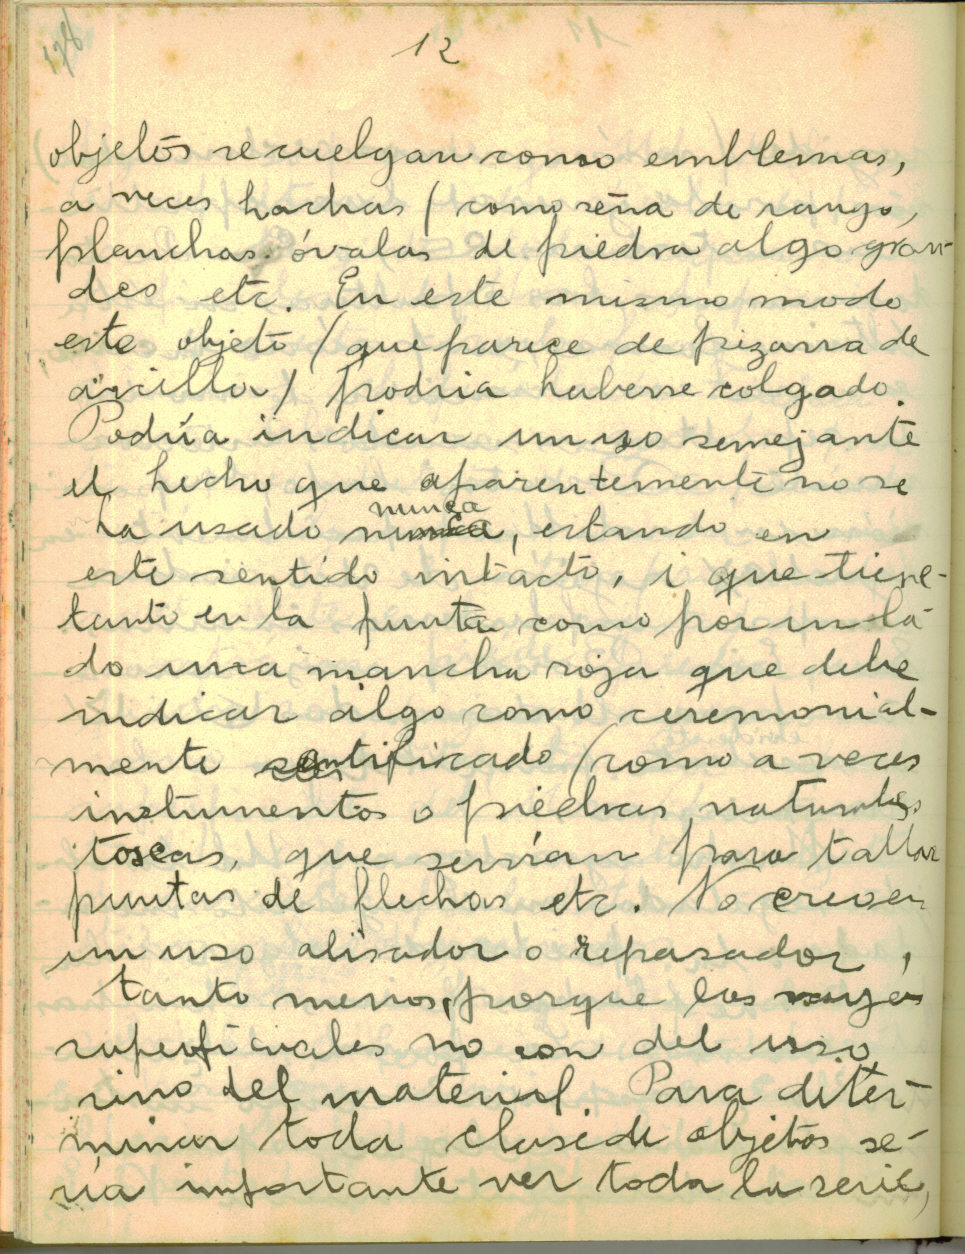 178
12
objetos se cuelgan como emblemas,
a veces hachas (como seña de rango,
planchas óvalas de piedra algo gran-
des etc. En este mismo modo
este objeto (que parece de pizarra de
arcilla) podria haberse colgado.
Podría indicar un uso semejante
el hecho que aparentemente no se
nunca
ha usado nunca, estando en
este sentido intacto, i que tiene
tanto en la punta como por un la-
do una mancha roja que debe
indicar algo como ceremonial-
mente santificado (como a veces
instumentos o piedras naturales
toscas, que servian para tallar
puntas de flechas etc. No creo en
un uso alisador o repasador,
tanto menos, porque las rayas
superficiales no son del uso
sino del material. Para deter-
minar toda clase de objetos se-
ría importante ver toda la serie,